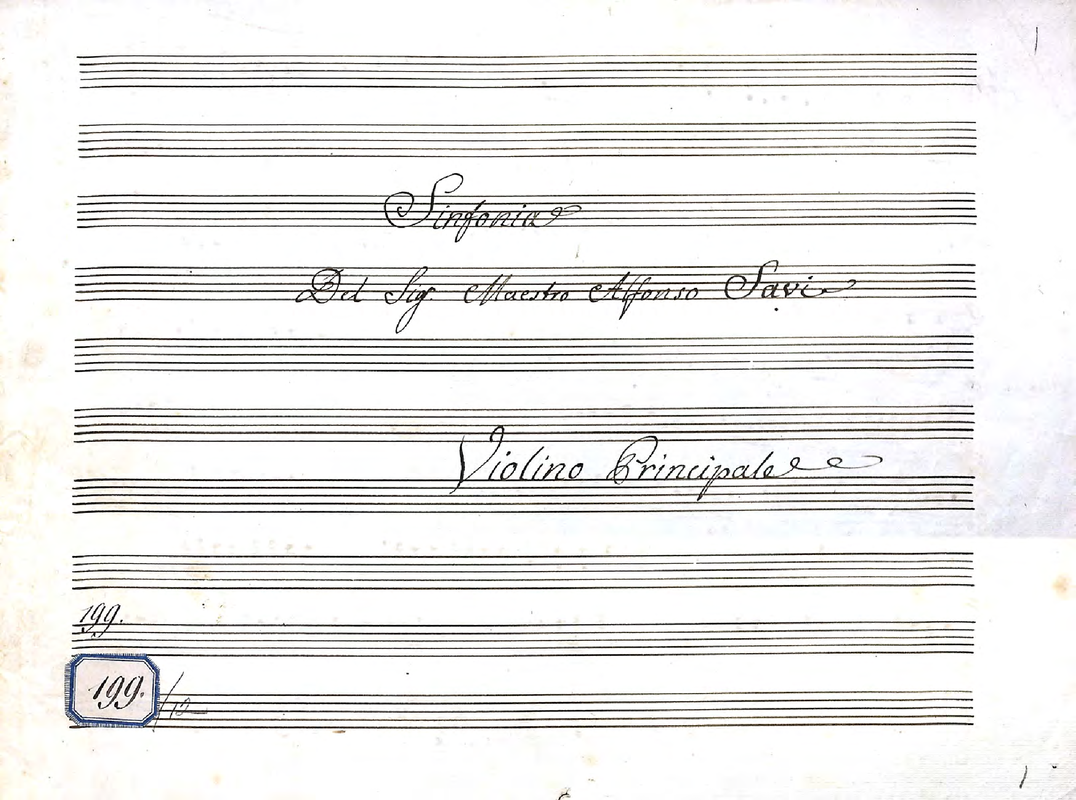 1
Sinfonia
Del Sigr Maestro Alfonso Savi
Violino Principale
199.
199. /12
1